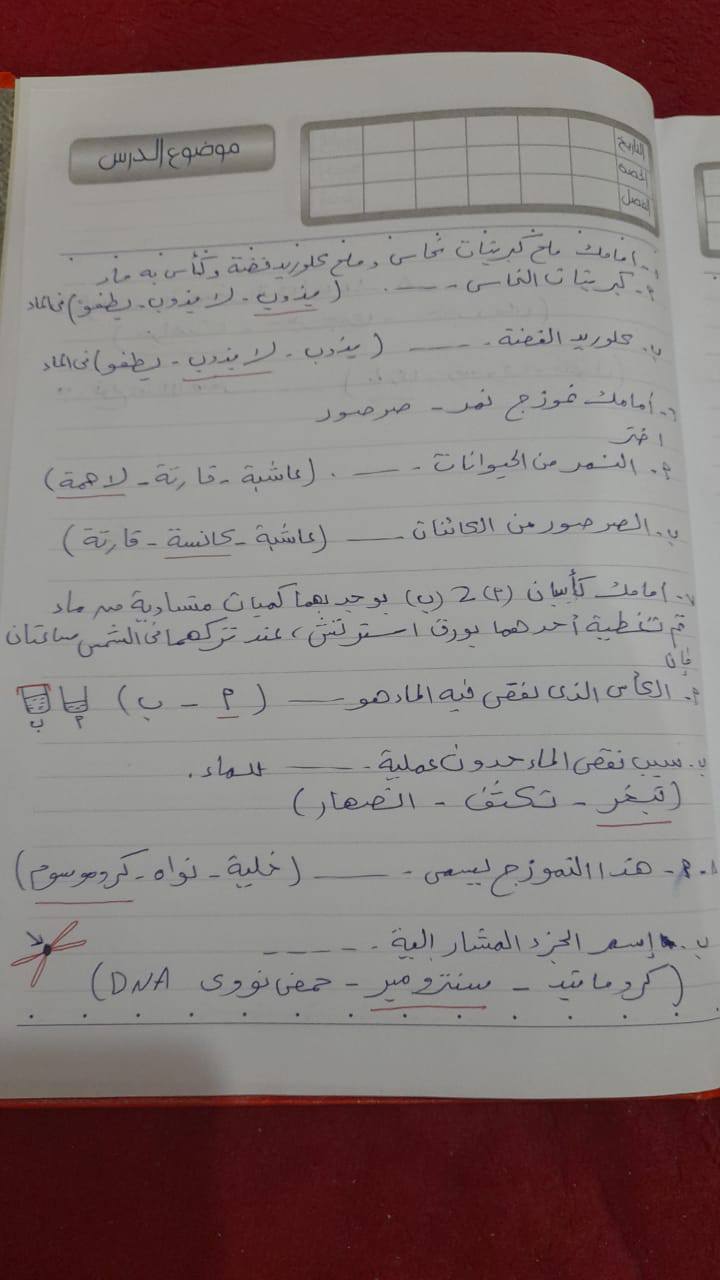 موضوع الدرس
التاريخ
الحصة
الفصل
أمامك ملح كبريتات نحاس وملح كلوريد فضة وكأس به ماء
٢. كبريتات النحاس ---- . (يذوب - لا يذوب - يطفو) في الماء
ب. كلوريد الفضة . ---- (يذوب - لا يذوب - يطفو) في الماء
٦- أمامك نموزج نمر - صرصور
اختر
٢. النمر من الحيوانات . ---- . (عاشبة - قارتة - لاحمة)
ب. الصرصور من الكائنات ---- (عاشبة - كانسة - قارتة)
٧- أمامك كأسان (٢) 2 (ب) يوجد بهما كميات متساوية من ماء
تم تغطية أحدهما بورق استرتش، عند تركهما في الشمس ساعتان
فإن
٢. الكأس الذى نقص فيه الماء هو ---- (٢ - ب)
٢ ب
ب. سبب نقص الماء حدوث عملية . ---- للماء .
(تبخر - تكثف - انصهار)
٨. ٢- هذا النموزج يسمى . ---- (خلية - نواه - كروموسوم)
ب. إسم الجزء المشار الية . ----
(كروماتيد - سنترومير - حمض نووى DNA)